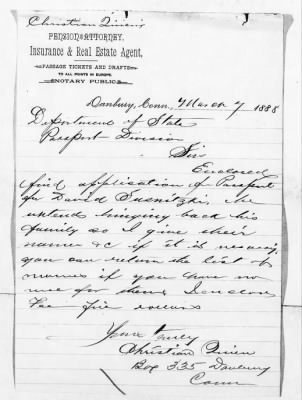 Christian Quien's
PENSION ATTORNEY,
Insurance & Real Estate Agent,
PASSAGE TICKETS AND DRAFTS
TO ALL POINTS IN EUROPE.
NOTARY PUBLIC.
Danbury, Conn., March 7 1888
Department of State
Passport Division
Sir
Enclosed
find application of Passport
for David Susnitzki, he
intend bringing back his
family so I give their
names &c if it is necessary,
you can return the list of
names if you have no
use for them, Inclose
Fee five dollars
Yours truly
Christian Quien
Box 335 Danbury
Conn